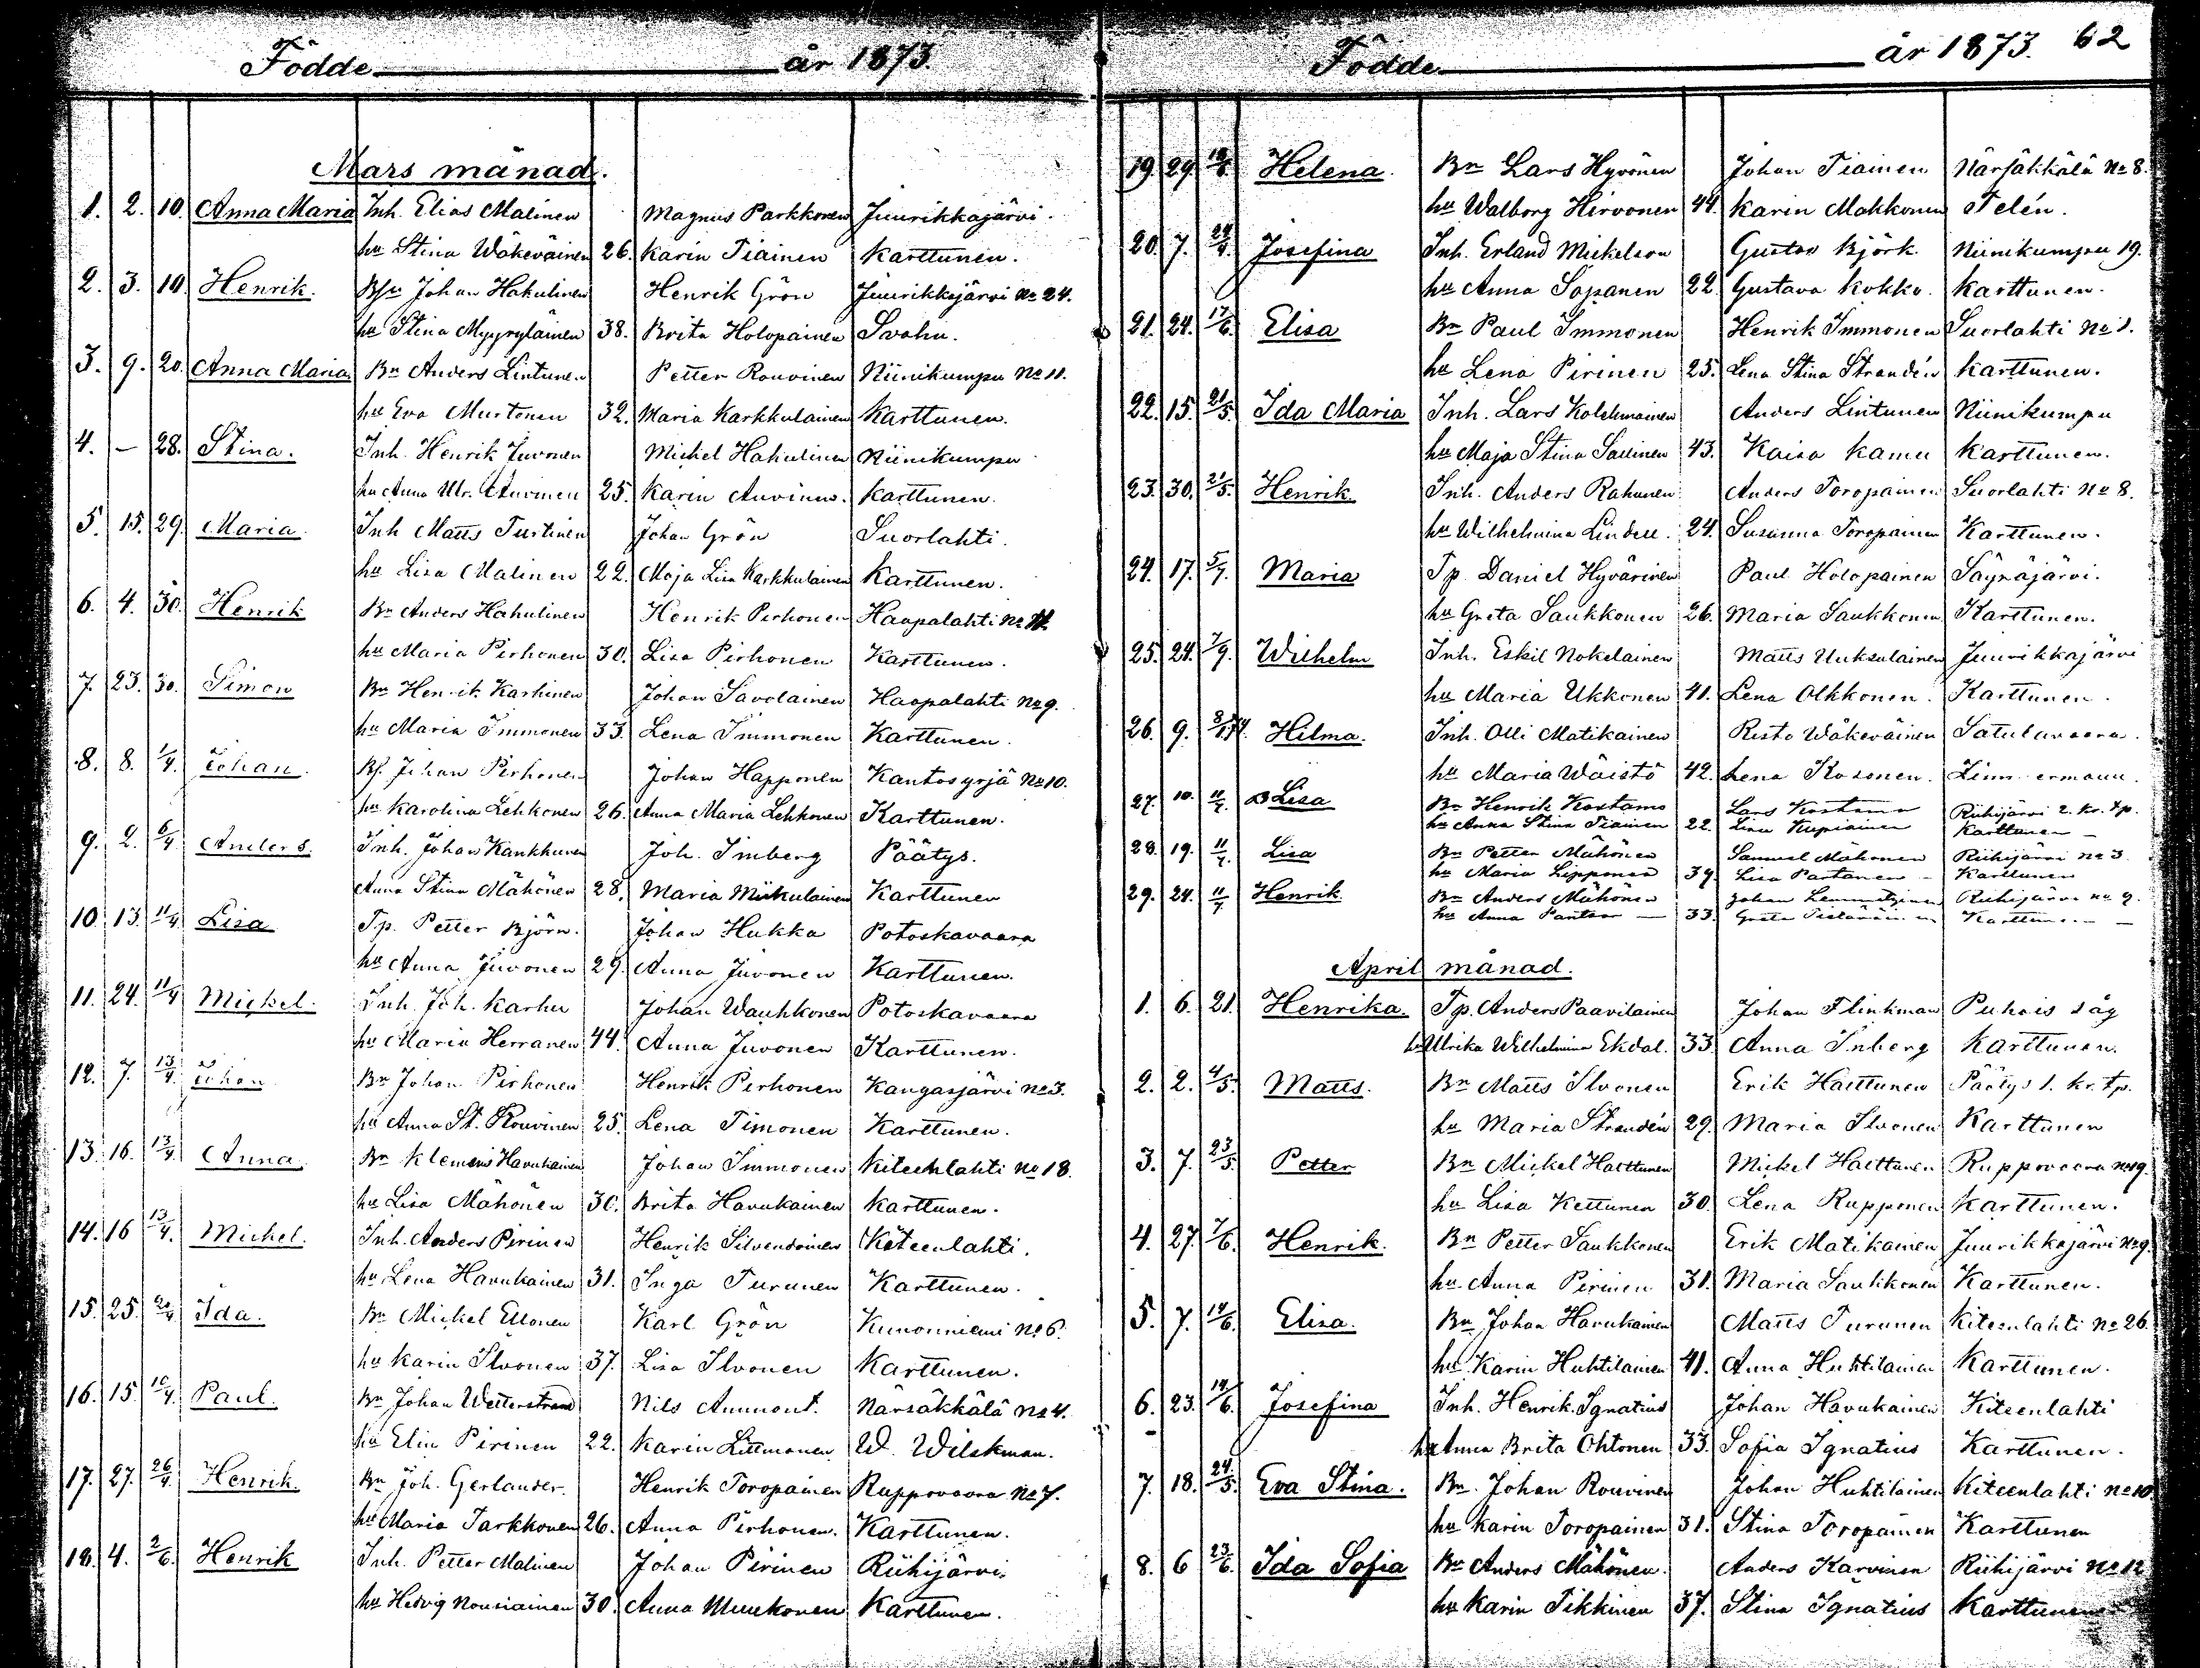 Födde år 1873.
Mars månad.
1. 2. 10. Anna Maria Inh. Elias Malinen Magnus Parkkonen Juurikkajärvi.
hu Stina Wäkeväinen 26. Karin Tiainen Karttunen.
2. 3. 10. Henrik. Johan Hakulinen Henrik Grön Juurikkajärvi No 24.
hu Stina Myyryläinen 38. Brita Holopainen Svahn.
3. 9. 20. Anna Maria Bn Anders Lintunen Petter Rouvinen Niinikumpu No 11.
hu Eva Murtonen 32. Maria Karkkulainen Karttunen.
4. — 28. Stina. Inh. Henrik Juvonen Mickel Hakulinen Niinikumpu
hu Anna Ulr. Auvinen 25. Karin Auvinen. Karttunen.
5. 15. 29. Maria. Inh Matts Turtinen Johan Grön Suorlahti.
hu Lisa Malinen 22. Maja Lisa Karkkulainen Karttunen.
6. 4. 30. Henrik Bn Anders Hakulinen Henrik Pirhonen Haapalahti No
hu Maria Pirhonen 30. Lisa Pirhonen Karttunen.
7. 23. 30. Simon Bn Henrik Karhinen Johan Savolainen Haapalahti No 9.
hu Maria Immonen 33. Lena Immonen Karttunen.
8. 8. 1/4. Johan. Johan Pirhonen Johan Happonen Kantosyrjä No 10.
hu Karolina Lehkonen 26. Anna Maria Lehkonen Karttunen.
9. 2. 6/4. Anders. Inh. Johan Kankkunen Joh. Imberg Päätys.
Anna Stina Mähönen 28. Maria Miikulainen Karttunen
10. 13. 11/4 Lisa Tp. Petter Björn. Johan Hukka Potoskavaara
hu Anna Juvonen 29. Anna Juvonen Karttunen.
11. 24. 11/4 Mickel. Inh. Joh. Karhu Johan Wauhkonen Potoskavaara
hu Maria Herranen 44. Anna Juvonen Karttunen.
12. 7. 13/4. Johan Bn Johan Pirhonen Henrik Pirhonen Kangasjärvi No 3.
hu Anna St. Rouvinen 25. Lena Timonen Karttunen.
13. 16. 13/4. Anna. Bn Klemens Havukainen Johan Immonen Kiteenlahti No 18.
hu Lisa Mähönen 30. Brita Havukainen Karttunen.
14. 16 13/4. Mickel. Inh. Anders Pirinen Henrik Silvendoinen Kiteenlahti.
hu Lena Havukainen 31. Inga Turunen Karttunen.
15. 25. 20/4 Ida. Bn Mickel Ellonen Karl Grön Kunonniemi No 6.
hu Karin Ilvonen 37. Lisa Ilvonen Karttunen.
16. 15. Paul. Bn Johan Wetterstrand Nils Ammont. Närsäkkälä No 4.
hu Elin Pirinen 22. Karin Littmanen W. Wilskman.
17. 27. 26/4. Henrik. Bn Joh. Gerlander. Henrik Toropainen Ruppovaara No 7.
hu Maria Tarkkonen 26. Anna Pirhonen. Karttunen.
18. 4. 2/6. Henrik Inh. Petter Malinen Johan Pirinen Riihijärvi.
hu Hedvig Nousiainen 30. Anna Muukonen Karttunen.
Födde år 1873. 62
19. 29. Helena. Bn Lars Hyvönen Johan Tiainen Närsäkkälä No 8.
hu Walborg Hirvonen 44. Karin Makkonen Telén.
20. 7. Josefina Inh. Erland Mickelson Gustav Björk Niinikumpu 19.
hu Anna Sapanen 22. Gustava Kokko. Karttunen.
21. 24. 17/6. Elisa Bn Paul Immonen Henrik Immonen Suorlahti No 1.
hu Lena Pirinen 25. Lena Stina Strandén Karttunen.
22. 15. 21/5. Ida Maria Inh. Lars Kolehmainen Anders Lintunen Niinikumpu
hu Maja Stina Sallinen 43. Kaisa Kamu Karttunen.
23. 30. 21/5. Henrik Inh. Anders Rahunen Anders Toropainen Suorlahti No 8.
hu Wilhelmina Lindell. 24. Susanna Toropainen Karttunen.
24. 17. 5/7. Maria Tp. Daniel Hyvärinen Paul Holopainen Säynäjärvi.
hu Greta Saukkonen 26. Maria Saukkonen Karttunen.
25. 24. 7/9. Wilhelm Inh. Eskil Nokelainen Matts Uuksulainen Juurikkajärvi
hu Maria Ukkonen 41. Lena Olkkonen. Karttunen.
26. 9. Hilma. Inh. Olli Matikainen Risto Wäkeväinen Satulavaara.
hu Maria Wäistö 42. Lena Kosonen.
27. 10. Lisa Bn Henrik Kostamo Lars Kostamo Riihijärvi 2. kr. tp.
hu Anna Stina Tiainen 22. Lisa Kupiainen Karttunen —
28. 19. Lisa Bn Petter Mähönen Samuel Mähönen Riihijärvi No 3.
hu Maria Lipponen 39. Lisa Partanen — Karttunen
29. 24. Henrik Bn Anders Mähönen Johan Riihijärvi No 9.
hu Anna — 33. Greta Karttunen —
April månad.
1. 6. 21. Henrika. Tp. Anders Paavilainen Johan Flinkman Puhois såg
hu Ulrika Wilhelmina Ekdal. 33. Anna Inberg Karttunen.
2. 2. 4/5. Matts. Bn Matts Ilvonen Erik Harttunen Päätys 1. kr. tp.
hu Maria Strandén 29. Maria Ilvonen Karttunen
3. 7. 23/5. Petter Bn Mickel Harttunen Mickel Harttunen Ruppovaara No 19.
hu Lisa Kettunen 30. Lena Rupponen Karttunen.
4. 27. 7/6. Henrik. Bn Petter Saukkonen Erik Matikainen Juurikkajärvi No 9.
hu Anna Pirinen 31. Maria Saukkonen Karttunen.
5. 7. 14/6. Elisa. Bn Johan Havukainen Matts Turunen Kiteenlahti No 26.
hu Karin Huhtilainen 41. Anna Huhtilainen Karttunen.
6. 23. 14/6. Josefina Inh. Henrik Ignatius Johan Havukainen Kiteenlahti
hu Anna Brita Ohtonen 33. Sofia Ignatius Karttunen.
7. 18. 24/5. Eva Stina. Bn. Johan Rouvinen Johan Huhtilainen Kiteenlahti No 10.
hu Karin Toropainen 31. Stina Toropainen Karttunen
8. 6 23/6. Ida Sofia Bn Anders Mähönen. Anders Karvinen Riihijärvi No 12
hu Karin Tikkinen 37. Stina Ignatius Karttunen